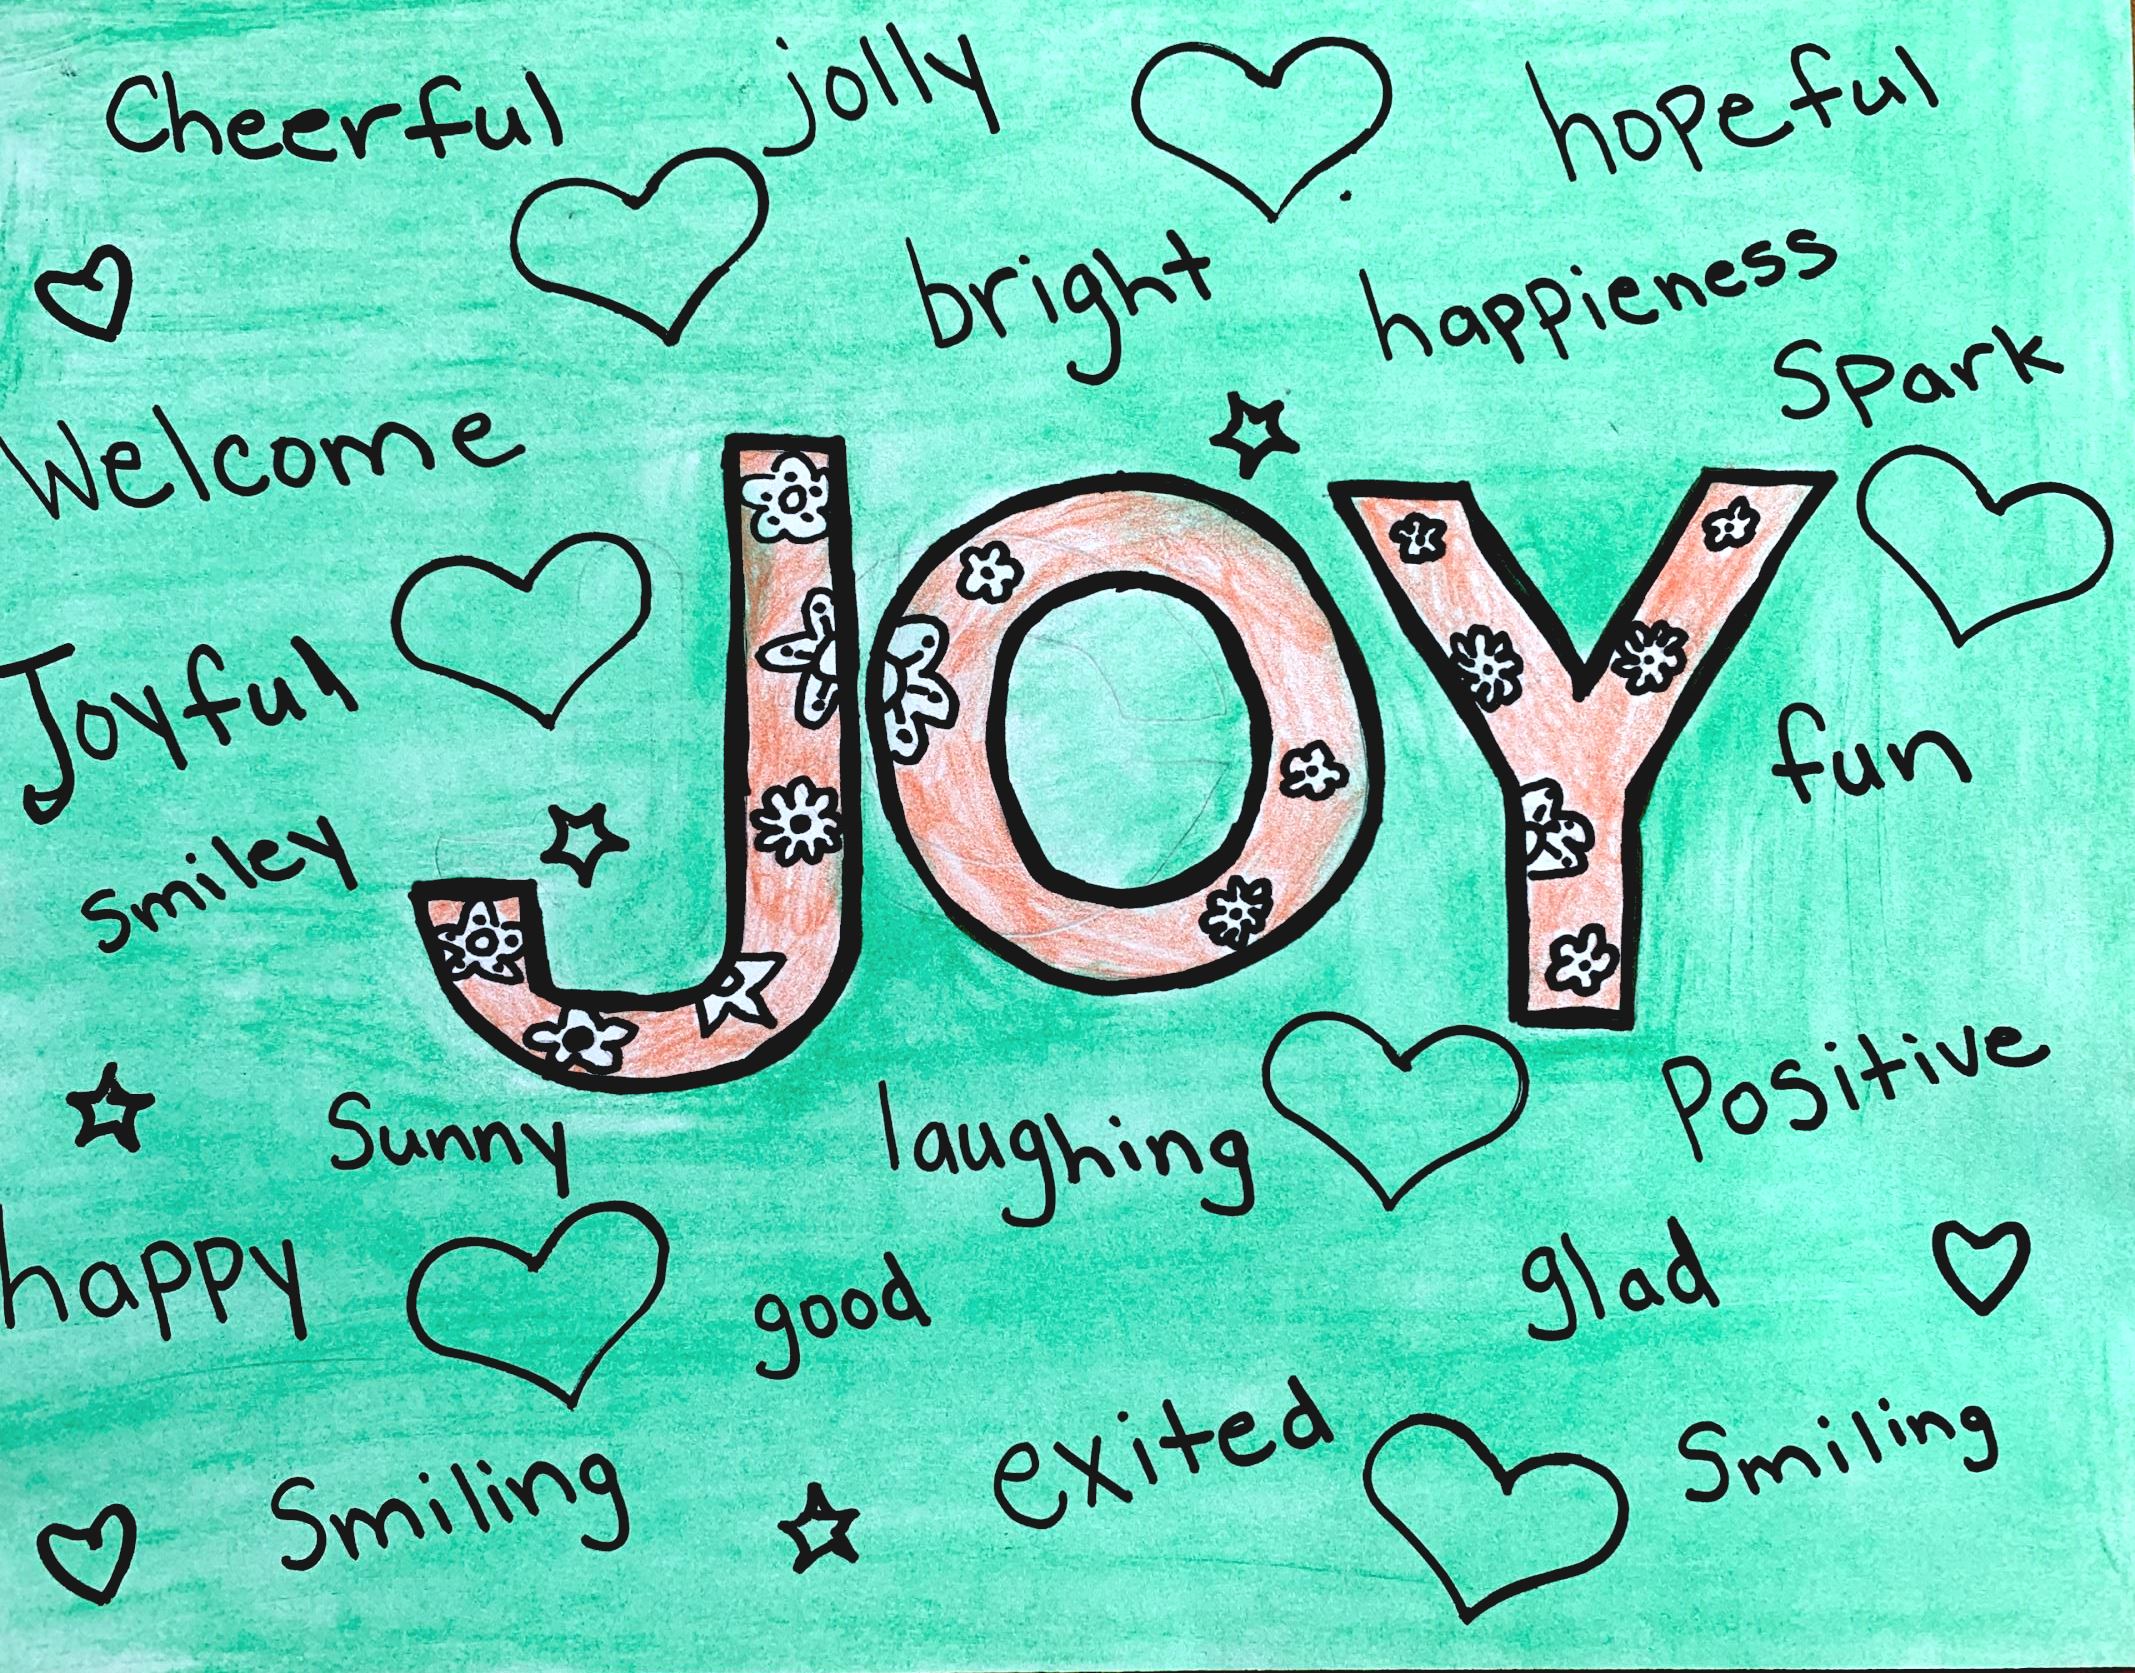 Cheerful
jolly
hopeful
bright
happieness
Spark
Welcome
JOY
Joyful
fun
smiley
Sunny
laughing
Positive
happy
good
glad
Smiling
exited
Smiling